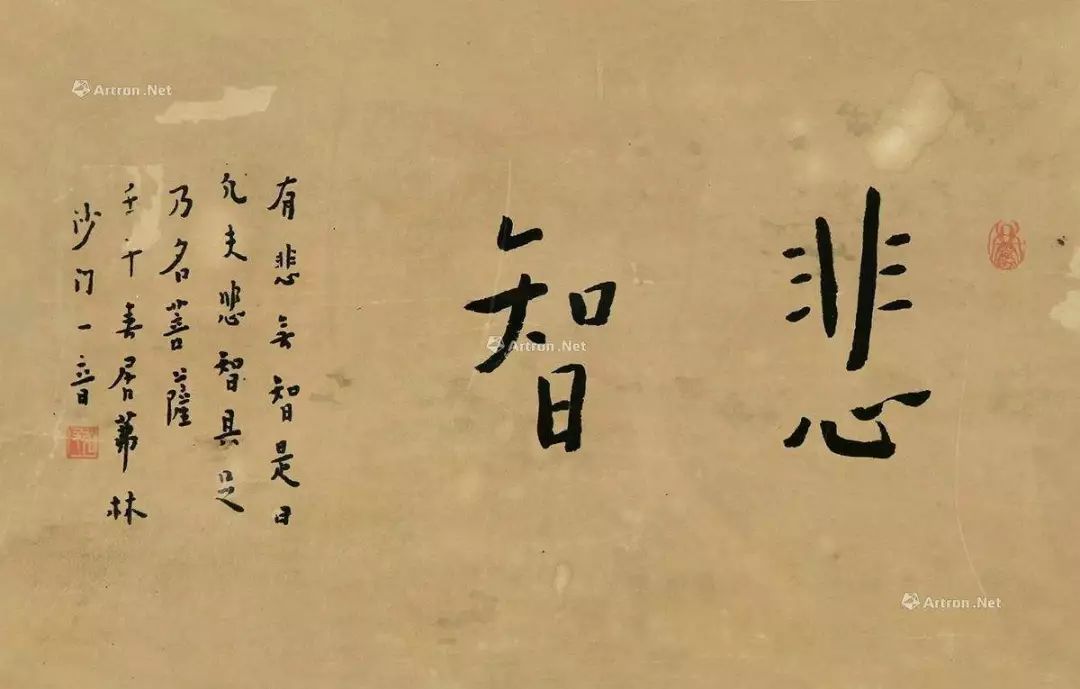 悲智
有悲無智是曰
凡夫悲智具足
乃名菩薩
壬午春居茀林
沙门一音
Artron.Net
Artron.Net
Artron.Net